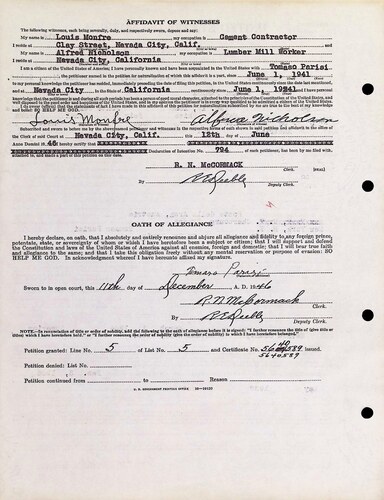 AFFIDAVIT OF WITNESSES
The following witnesses, each being severally, duly, and respectively sworn, depose and say:
My name is Louis Monfre, my occupation is Cement Contractor
I reside at Clay Street, Nevada City, Calif.
My name is Alfred Nicholson, my occupation is Lumber Mill Worker
I reside at Nevada City, California
I am a citizen of the United States of America; I have personally known and have been acquainted in the United States with Tomaso Parisi
, the petitioner named in the petition for naturalization of which this affidavit is a part, since June 1, 1941
to my personal knowledge the petitioner has resided, immediately preceding the date of filing this petition, in the United States continuously since the date last mentioned,
and at Nevada City, in the State of California continuously since June 1, 1941 and I have personal
knowledge that the petitioner is and during all such periods has been a person of good moral character, attached to the principles of the Constitution of the United States, and
well disposed to the good order and happiness of the United States, and in my opinion the petitioner is in every way qualified to be admitted a citizen of the United States.
I do swear (affirm) that the statements of fact I have made in this affidavit of this petition for naturalization subscribed by me are true to the best of my knowledge
and belief: SO HELP ME GOD.
Louis Monfre Alfred Nicholson
Subscribed and sworn to before me by the above-named petitioner and witnesses in the respective forms of oath shown in said petition and affidavit in the office of
the Clerk of said Court at Nevada City, Calif. this 12th day of June
Anno Domini 19 45 I hereby certify that
Declaration of Intention No. 794 of such petitioner, has been by me filed with,
attached to, and made a part of this petition on this date.
R. N. McCORMACK
Clerk. [SEAL]
By
Deputy Clerk.
OATH OF ALLEGIANCE
I hereby declare, on oath, that I absolutely and entirely renounce and abjure all allegiance and fidelity to any foreign prince,
potentate, state, or sovereignty of whom or which I have heretofore been a subject or citizen; that I will support and defend
the Constitution and laws of the United States of America against all enemies, foreign and domestic; that I will bear true faith
and allegiance to the same; and that I take this obligation freely without any mental reservation or purpose of evasion: SO
HELP ME GOD. In acknowledgment whereof I have hereunto affixed my signature.
Tomaso Parisi
Sworn to in open court, this 11th day of December, A. D. 1946
R. N. McCormack
Clerk.
By
Deputy Clerk.
NOTE.—In renunciation of title or order of nobility, add the following to the oath of allegiance before it is signed: "I further renounce the title of (give title or
titles) which I have heretofore held," or "I further renounce the order of nobility (give the order of nobility) to which I have heretofore belonged."
Petition granted: Line No. 5 of List No. 5 and Certificate No. 5640589 issued.
5640589
Petition denied: List No.
Petition continued from to Reason
U. S. GOVERNMENT PRINTING OFFICE